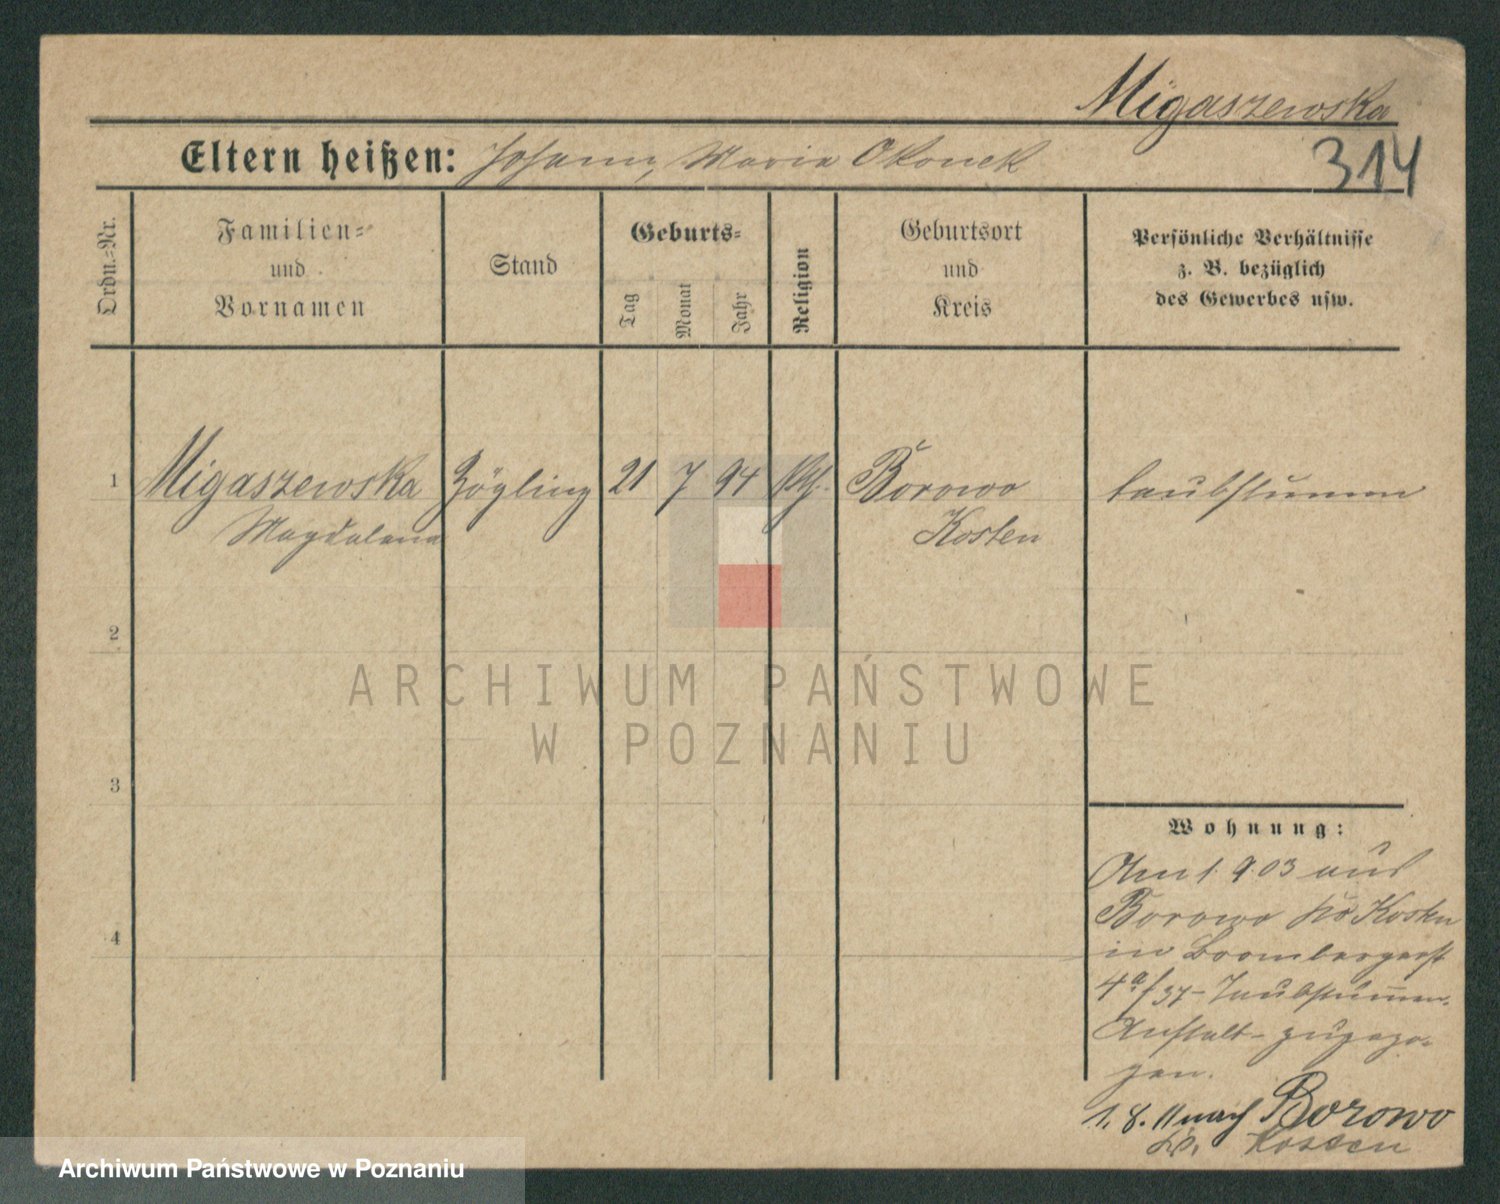 Migaszewska
Eltern heißen: Johann, Maria Okonek
314
Ordn.-Nr.
Familien-
und
Vornamen
Stand
Geburts-
Tag
Monat
Jahr
Religion
Geburtsort
und
Kreis
Persönliche Verhältnisse
z. B. bezüglich
des Gewerbes usw.
1 Migaszewska Zögling 21 7 94 kth. Borowo taubstumm
Magdalena Kosten
2
ARCHIWUM PAŃSTWOWE
W POZNANIU
3
Wohnung:
Am 1. 9. 03 aus
Borowo Kr Kosten
in Brombergerst
4a/37 - Taubstummen-
Anstalt - zugezo-
gen.
4
1. 8. 11 nach Borowo
Kr. Kosten
Archiwum Państwowe w Poznaniu